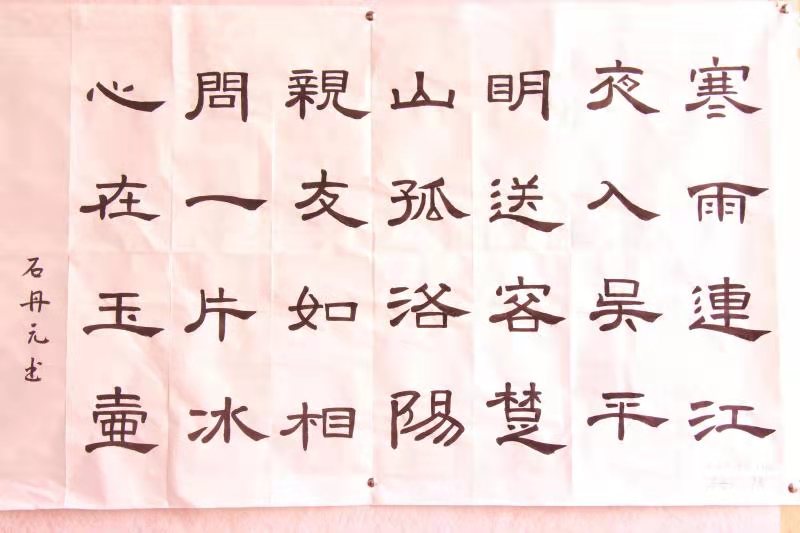 寒雨連江
夜入吴平
明送客楚
山孤洛陽
親友如相
問一片冰
心在玉壺
石丹元书